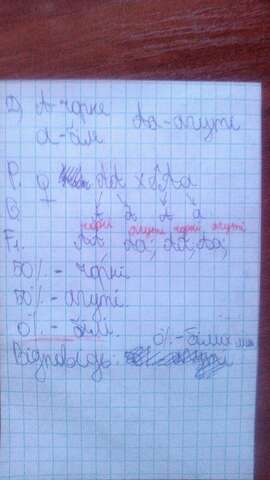 Д) А-чорне Аа-агуті
а-білі
Р. ♀ АА х ♂ Аа
G А А А а
чорні агуті чорні агуті
F1. АА Аа; АА, Аа;
50% - чорні
50% - агуті.
0% - білі.
0% - білих
Відповідь: